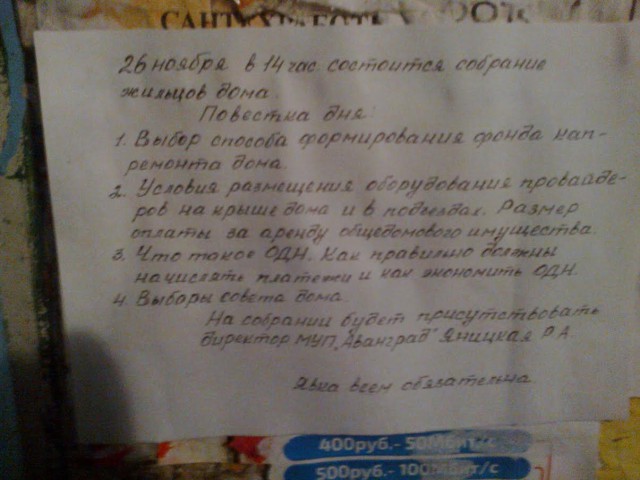 САНТЕХРАБОТЫ
26 ноября в 14 час. состоится собрание
жильцов дома.
Повестка дня:
1. Выбор способа формирования фонда кап-
ремонта дома.
2. Условия размещения оборудования провайде-
ров на крыше дома и в подъездах. Размер
оплаты за аренду общедомового имущества.
3. Что такое ОДН. Как правильно должны
начислять платежи и как экономить ОДН.
4. Выборы совета дома.
На собрании будет присутствовать
директор МУП „Авангард" Яницкая Р.А.
Явка всем обязательна
400руб.- 50Мбит/с
500руб.- 100Мбит/с